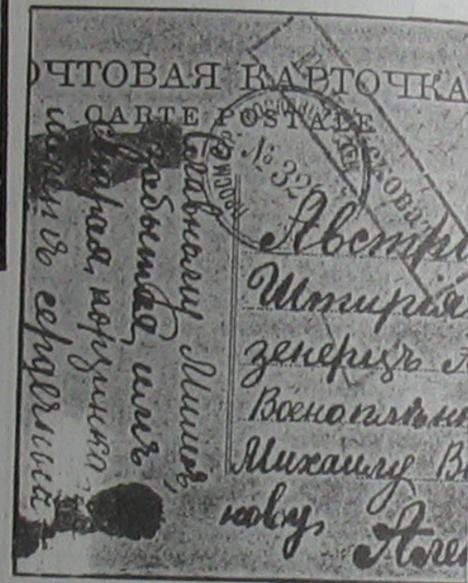 ПОЧТОВАЯ КАРТОЧКА
CARTE POSTALE
№ 32
Австрі
Штирія
зенерицъ
Военоплѣнн
Михаилу В
нову
Але
Славному Мишѣ,
забытая имъ
старая корзинка
шлетъ сердечный